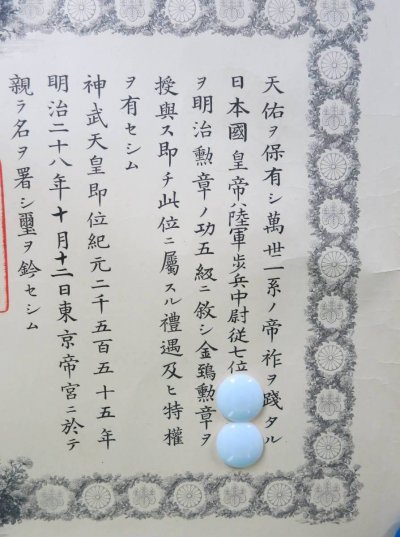 天佑ヲ保有シ萬世一系ノ帝祚ヲ踐タル
日本國皇帝ハ陸軍步兵中尉從七位
ヲ明治勲章ノ功五級ニ敘シ金鵄勲章ヲ
授與ス即チ此位ニ屬スル禮遇及ヒ特權
ヲ有セシム
神武天皇即位紀元二千五百五十五年
明治二十八年十月十二日東京帝宮ニ於テ
親ラ名ヲ署シ璽ヲ鈐セシム